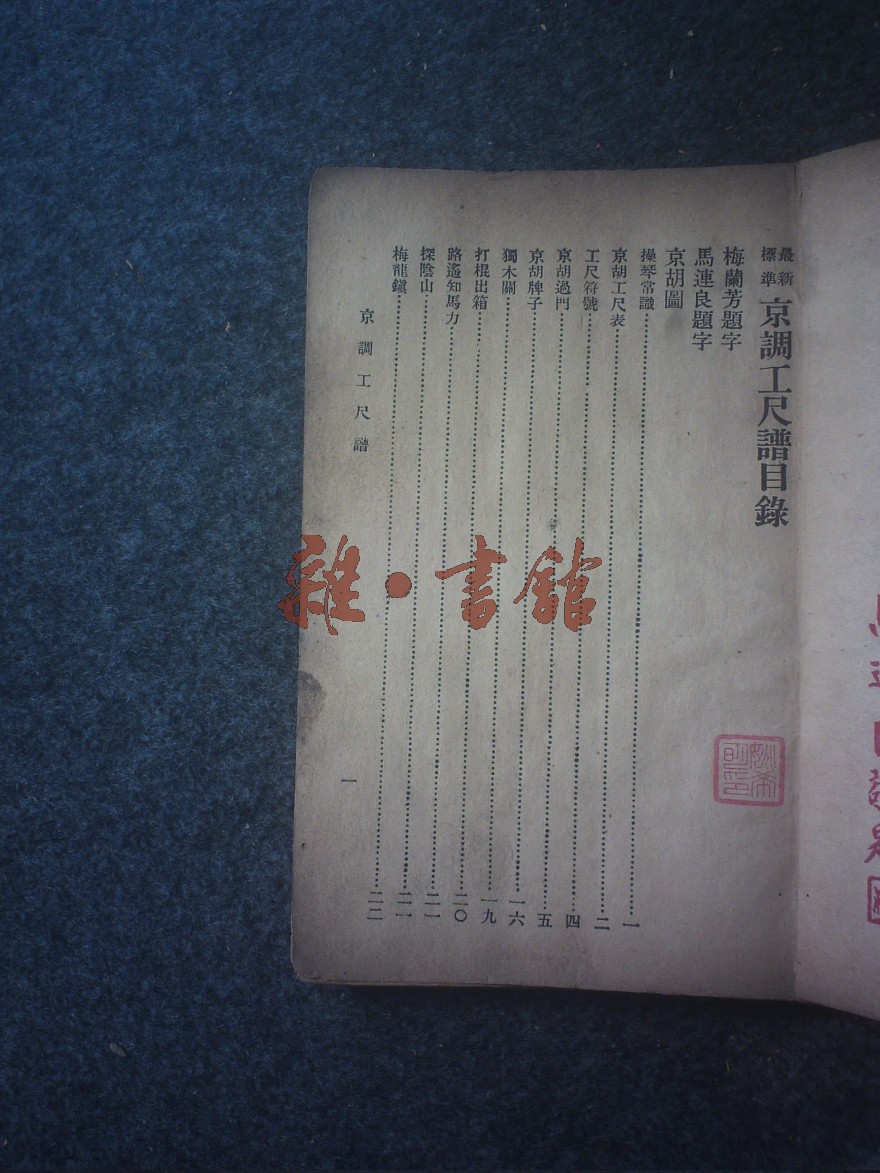 最新標準 京調工尺譜目錄
梅蘭芳題字
馬連良題字
京胡圖
操琴常識……一
京胡工尺表……二
工尺符號……四
京胡過門……五
京胡牌子……一六
獨木關……一九
打棍出箱……二〇
路遙知馬力……二一
探陰山……二一
梅龍鎮……二二
京調工尺譜
一
雜·書館